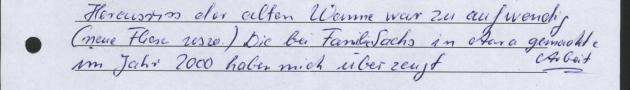 Herausriss der alten Wanne war zu aufwendig
(neue Fliese usw.) Die bei Familie Sachs in gemachte
im Jahr 2000 haben mich überzeugt Arbeit